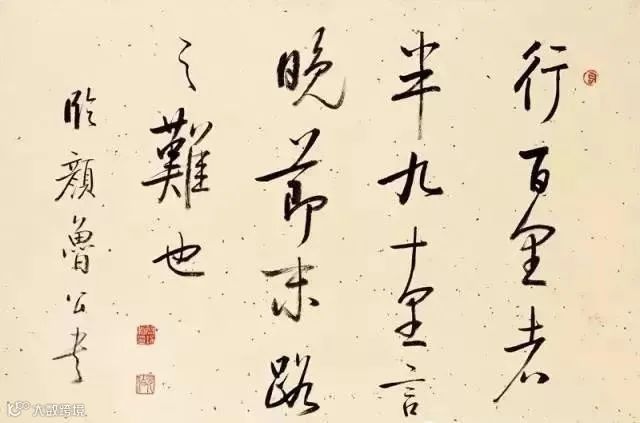 行百里者
半九十里言
晚節末路
之難也
臨顏魯公書
大数跨境